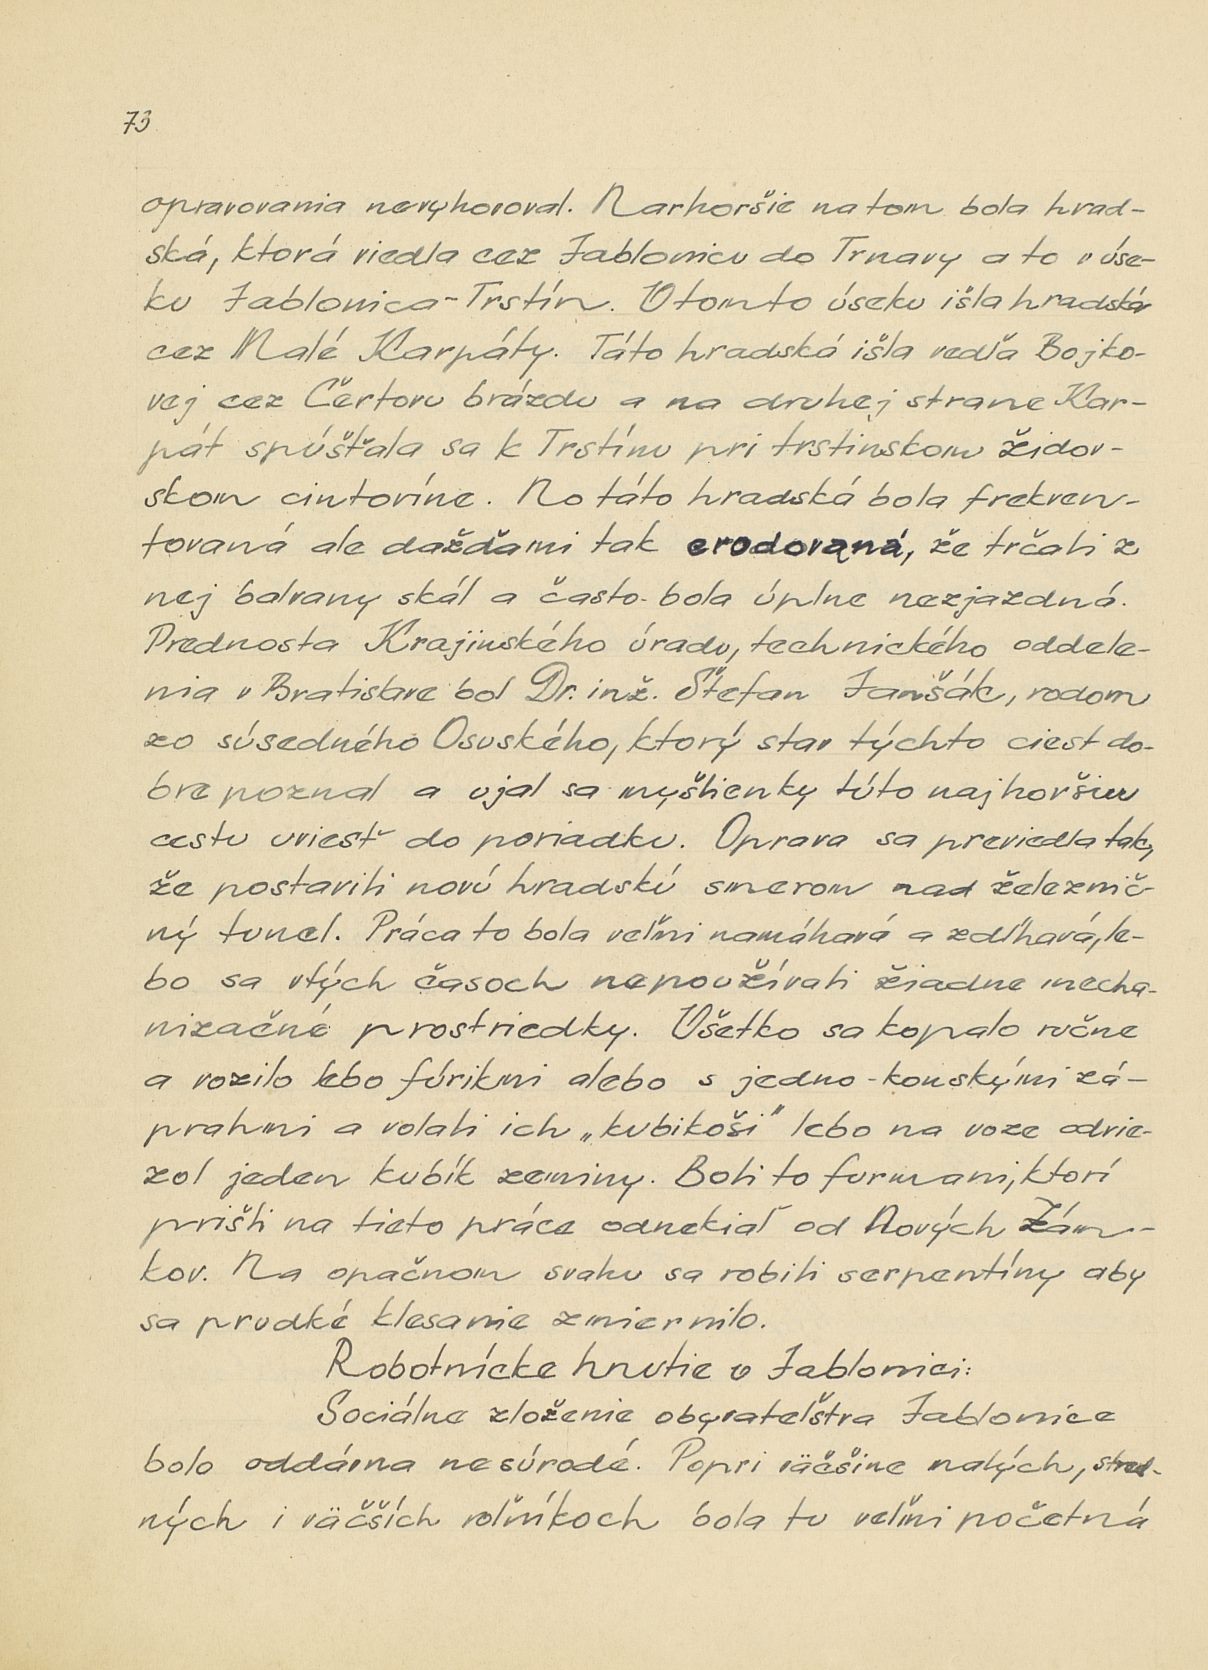 73
opravovania nevyhovoval. Narhoršie na tom bola hrad-
ská, ktorá viedla cez Jablonicu do Trnavy a to v úse-
ku Jablonica-Trstín. V tomto úseku išla hradská
cez Malé Karpáty. Táto hradská išla vedľa Bojko-
vej cez Čertovu brázdu a na druhej strane Kar-
pát spúšťala sa k Trstínu pri trstinskom židov-
skom cintoríne. No táto hradská bola frekven-
tovaná ale dažďami tak erodovaná, že trčali z
nej balvany skál a často bola úplne nezjazdná.
Prednosta Krajinského úradu, technického oddele-
nia v Bratislave bol Dr. inž. Štefan Janšák, rodom
zo súsedného Osuského, ktorý stav týchto ciest do-
bre poznal a ujal sa myšlienky túto najhoršiu
cestu uviesť do poriadku. Oprava sa previedla tak,
že postavili novú hradskú smerom nad železnič-
ný tunel. Práca to bola veľmi namáhavá a zdĺhavá, le-
bo sa vtých časoch nepoužívali žiadne mecha-
nizačné prostriedky. Všetko sa kopalo ručne
a vozilo lebo fúrikmi alebo s jedno-konskými zá-
prahmi a volali ich „kubikoši" lebo na voze odvie-
zol jeden kubík zeminy. Boli to furmani, ktorí
prišli na tieto práce odnekiaľ od Nových Zám-
kov. Na opačnom svahu sa robili serpentíny aby
sa prudké klesanie zmiernilo.
Robotnícke hnutie v Jablonici:
Sociálne zloženie obyvateľstva Jablonice
bolo oddávna nesúrodé. Popri väčšine malých, stred-
ných i väčších roľníkoch bola tu veľmi početná